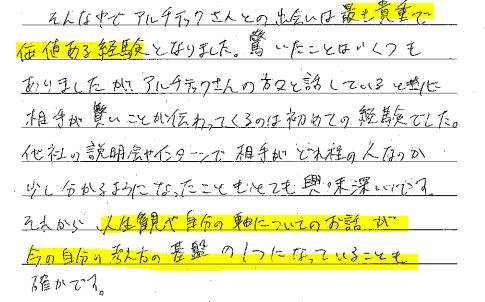 そんな中でアルチテックさんとの出会いは最も貴重で
価値ある経験となりました。驚いたことはいくつも
ありましたが、アルチテックさんの方々と話しているときに
相手が賢いことが伝わってくるのは初めての経験でした。
他社の説明会やインターンで相手がどれ程の人なのか
少し分かるようになったこともとても興味深いです。
それから、人生観や自分の軸についてのお話が
今の自分の考え方の基盤の1つになっていることも
確かです。